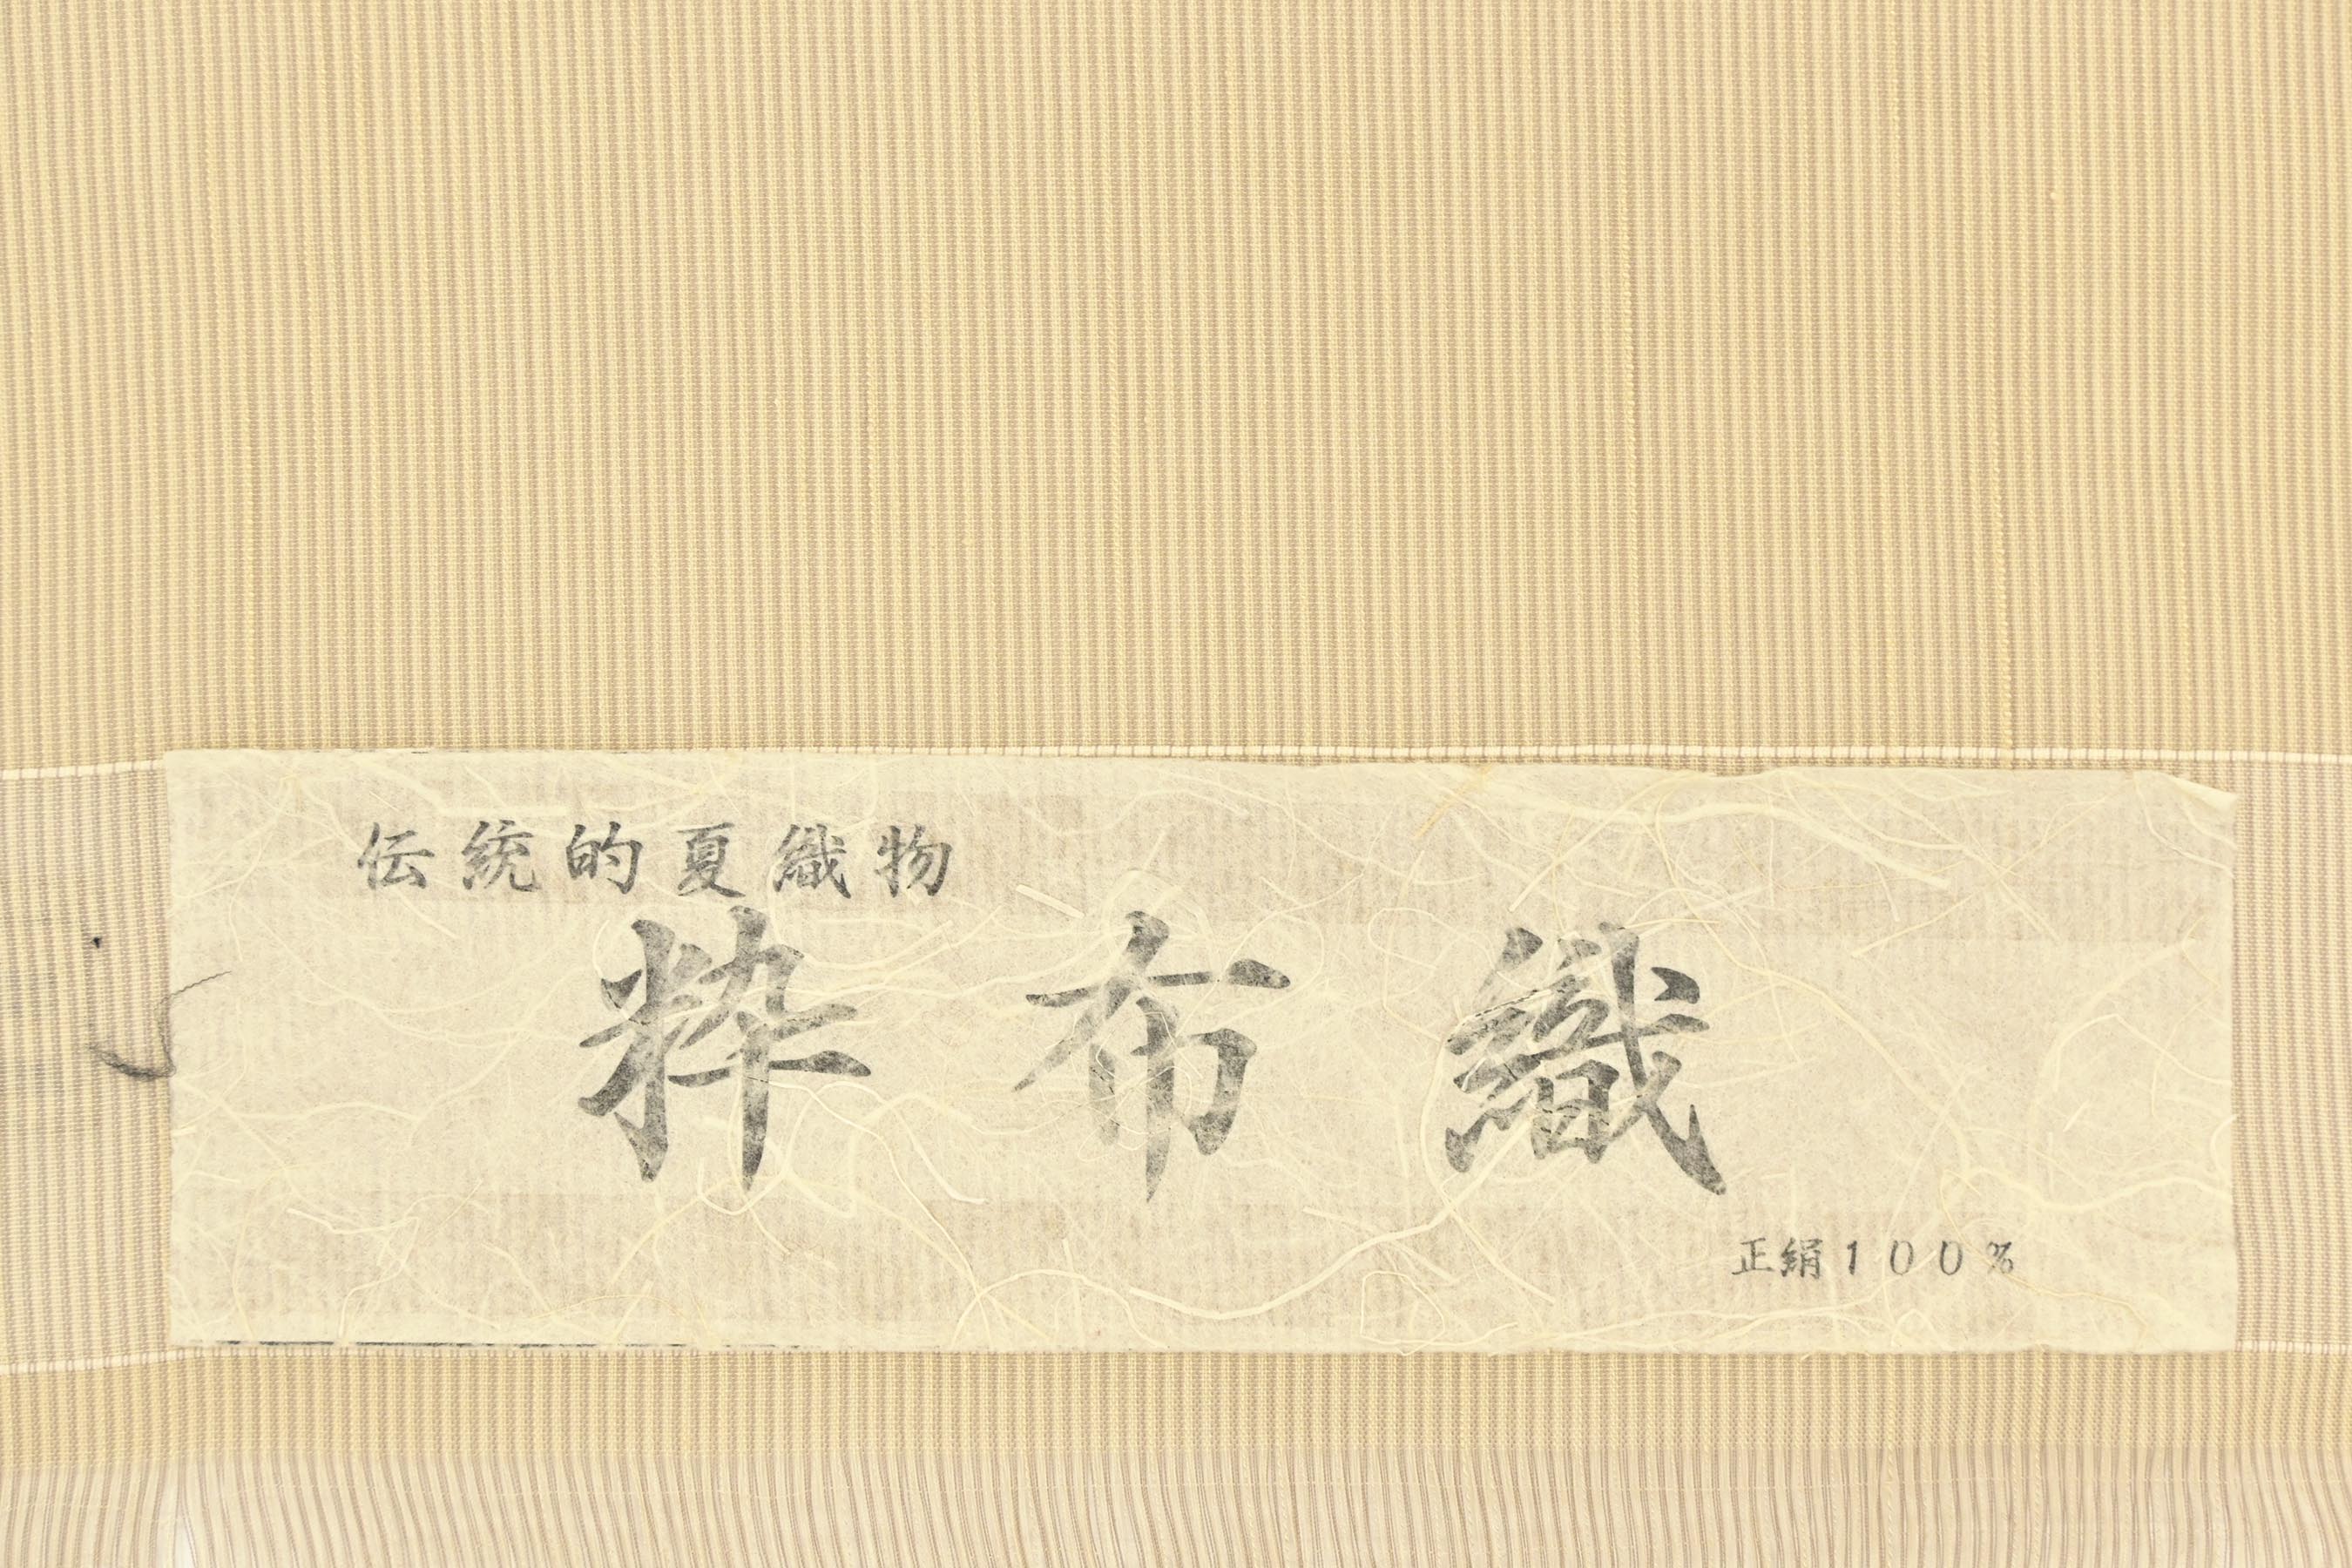 伝統的夏織物
粋布織
正絹100%